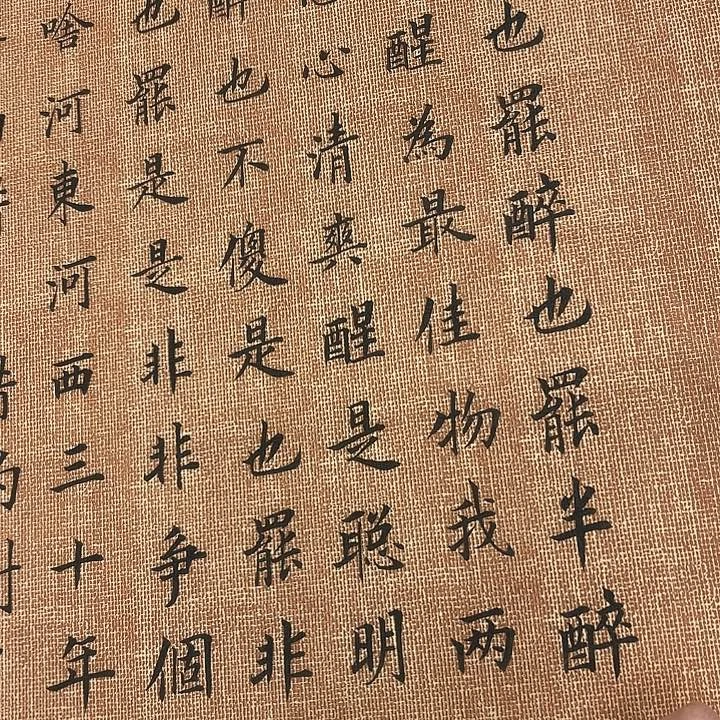 也罷醉也罷半醉
醒為最佳物我两
心清爽醒是聪明
也不傻是也罷非
也罷是是非非争個
啥河東河西三十年